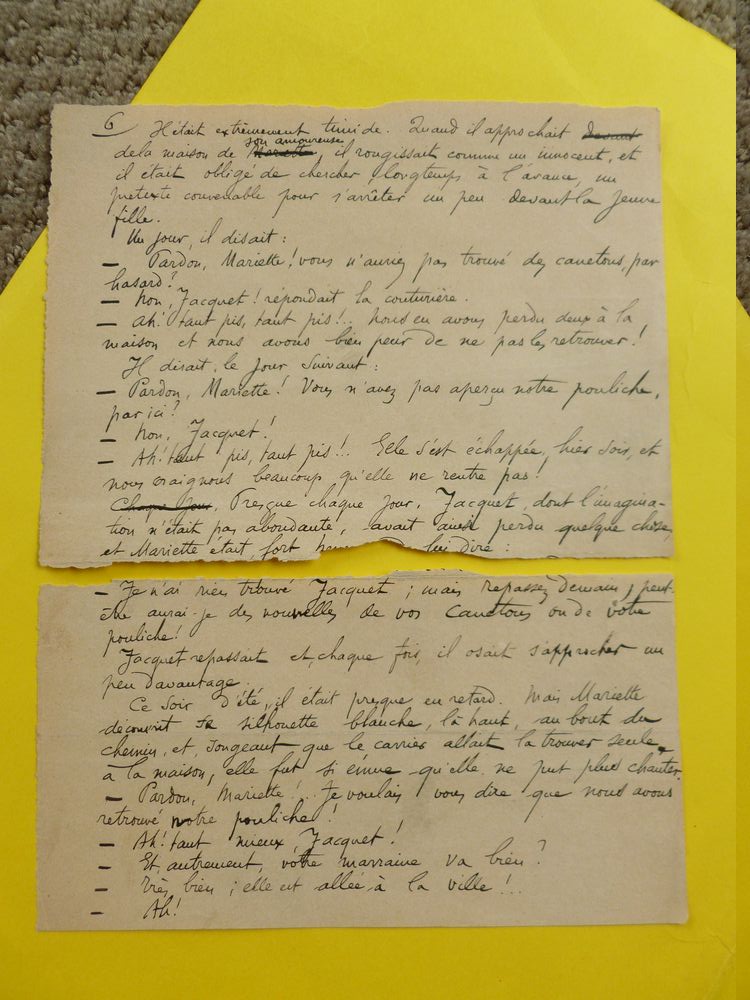 6 Il était extrêmement timide. Quand il approchait devant
de la maison de Mariette son amoureuse, il rougissait comme un innocent, et
il était obligé de chercher longtemps à l'avance, un
prétexte convenable pour s'arrêter un peu devant la jeune
fille.
Un jour, il disait :
— Pardon, Mariette ! vous n'auriez pas trouvé des canetons, par
hasard ?
— Non, Jacquet ! répondait la couturière.
— Ah ! tant pis, tant pis !.. Nous en avons perdu deux à la
maison et nous avons bien peur de ne pas les retrouver !
Il disait, le jour suivant :
— Pardon, Mariette ! Vous n'avez pas aperçu notre pouliche,
par ici ?
— Non, Jacquet !
— Ah ! tant pis, tant pis !.. Elle s'est échappée, hier soir, et
nous craignons beaucoup qu'elle ne rentre pas !
Chaque jour, Presque chaque jour, Jacquet, dont l'imagina-
tion n'était pas abondante, avait ainsi perdu quelque chose,
et Mariette était, fort lui dire :
— Je n'ai rien trouvé Jacquet ; mais repassez demain ; peut-
être aurai-je des nouvelles de vos canetons ou de votre
pouliche !
Jacquet repassait et, chaque fois, il osait s'approcher un
peu davantage.
Ce soir d'été, il était presque en retard. Mais Mariette
découvrit sa silhouette blanche, là-haut, au bout du
chemin, et, songeant que le carrier allait la trouver seule,
à la maison, elle fut si émue qu'elle ne put plus chanter.
— Pardon, Mariette !... Je voulais vous dire que nous avons
retrouvé notre pouliche !
— Ah ! tant mieux, Jacquet !
— Et, autrement, votre marraine va bien ?
— Très bien ; elle est allée à la ville !..
— Ah !